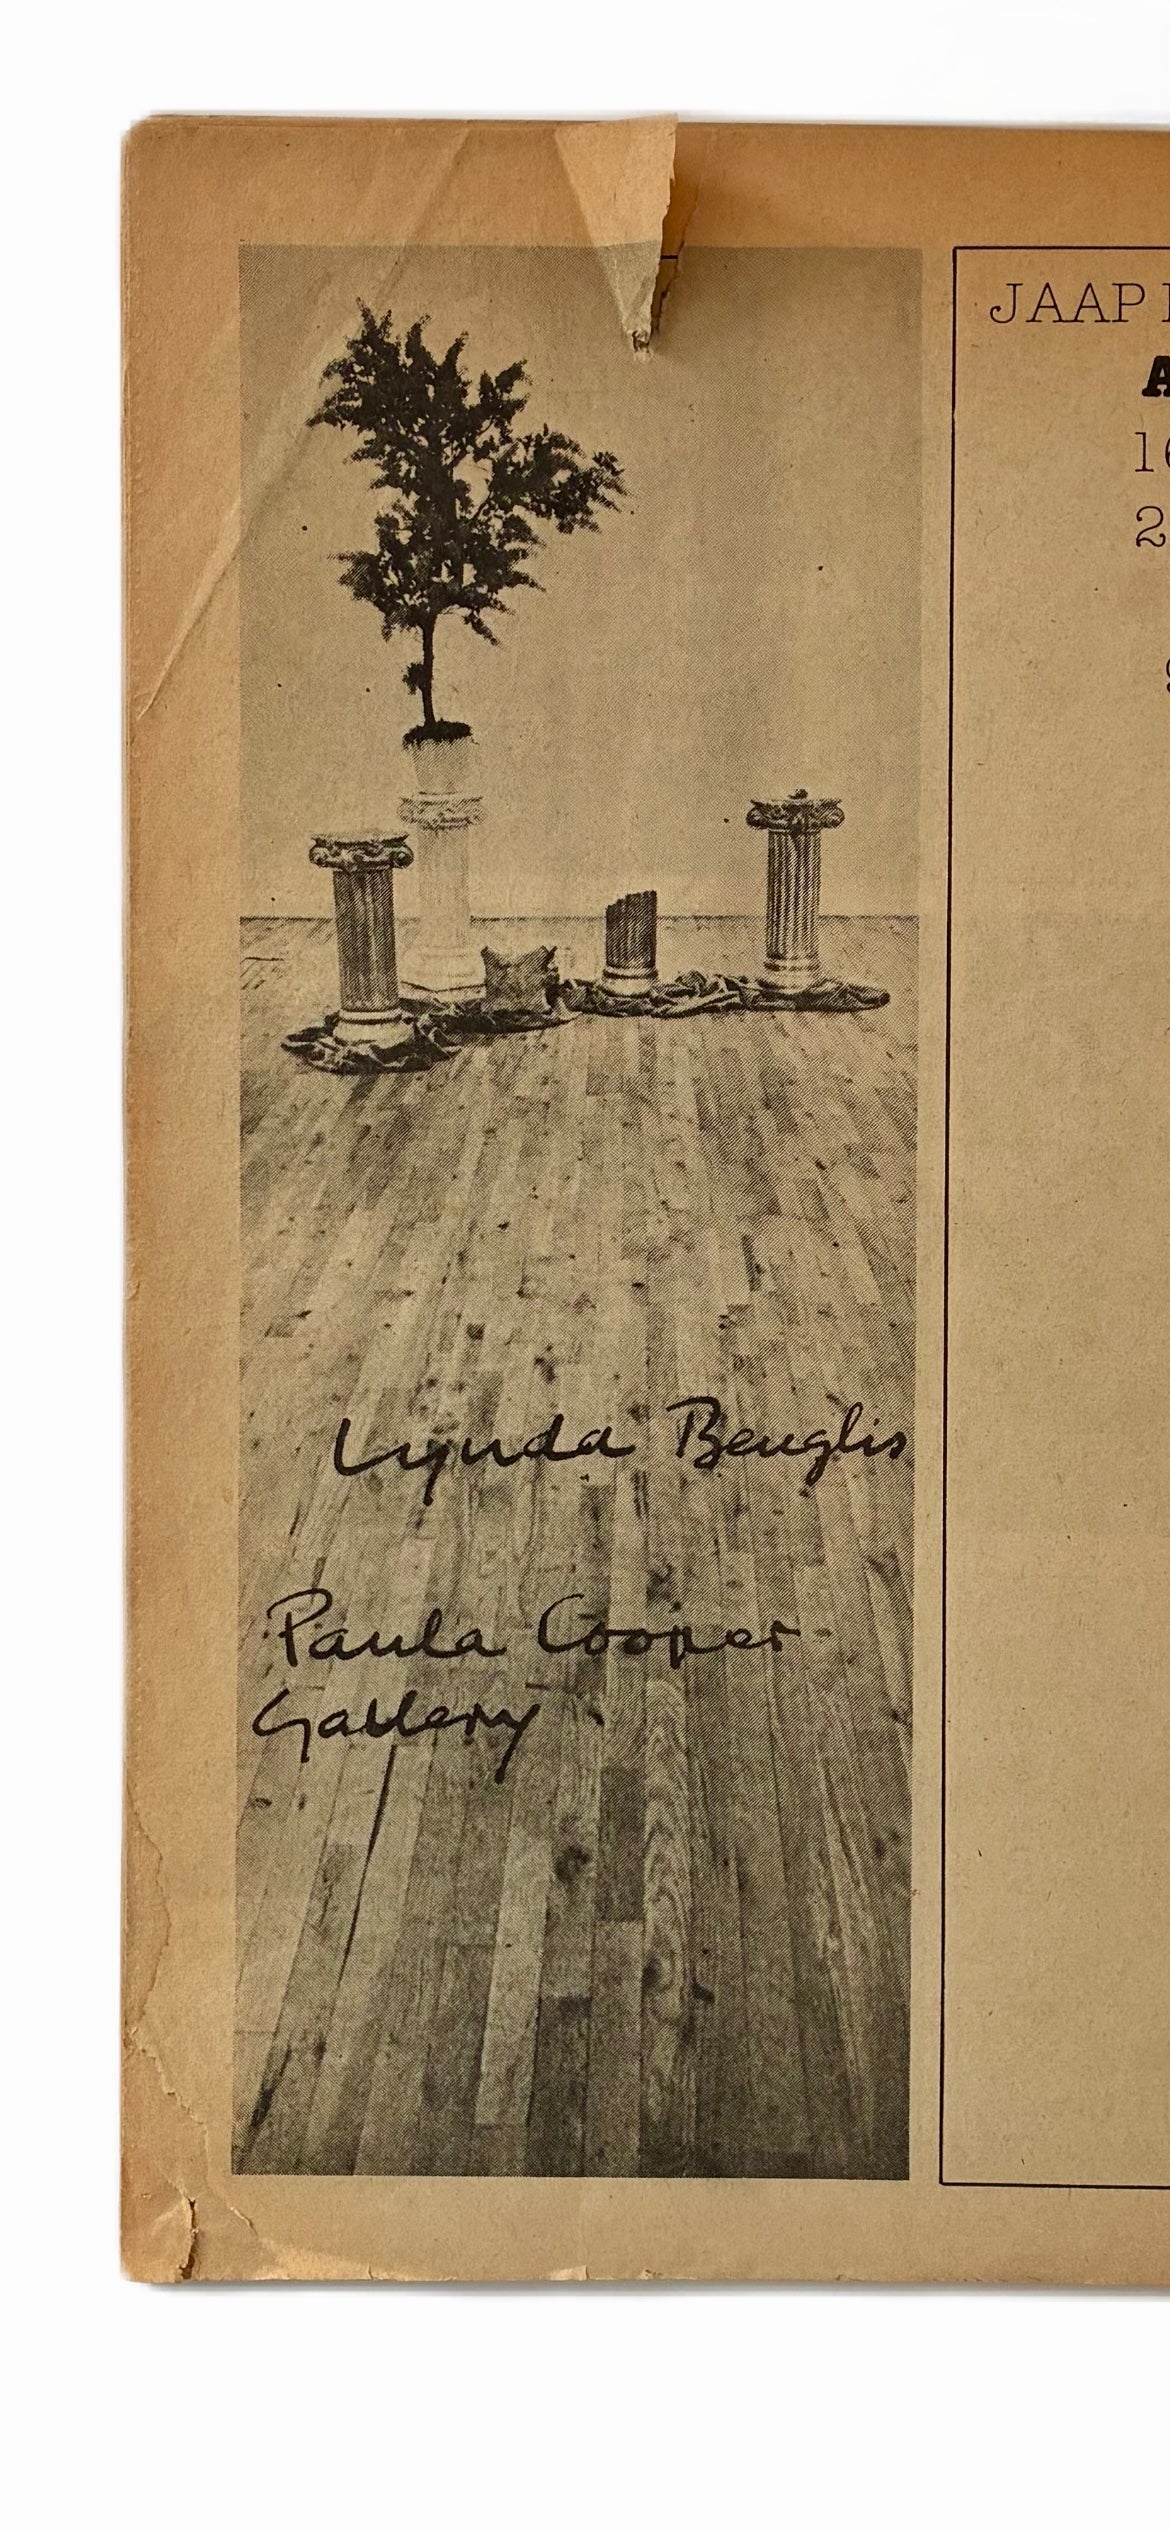 Lynda Benglis
Paula Cooper
Gallery
JAAP
16
2